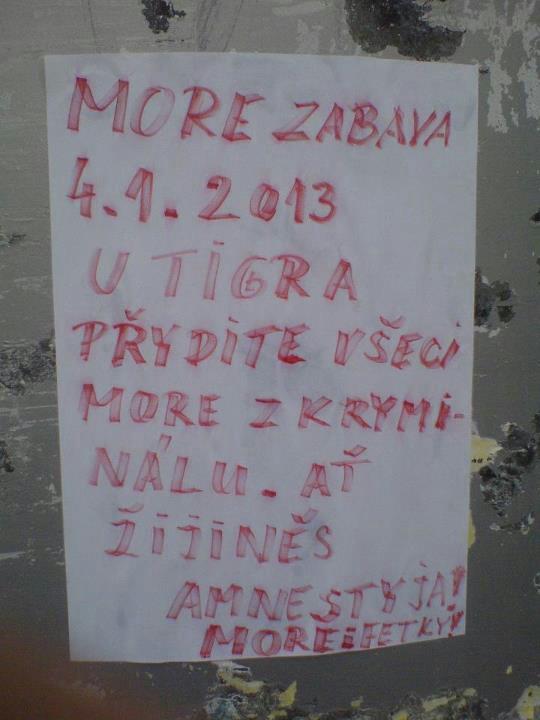 MORE ZABAVA
4.1.2013
U TiGRA
PŘYDiTE VŠECi
MORE Z KRYMi-
NÁLU. AŤ
ŽijiNĚS
AMNESTYJA!
MOREiFETKY!